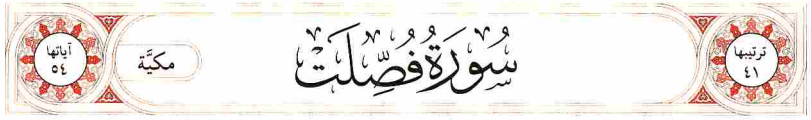 ترتيبها
٤١
سُورَةُ فُصِّلَتْ
مكيَّة
آياتها
٥٤